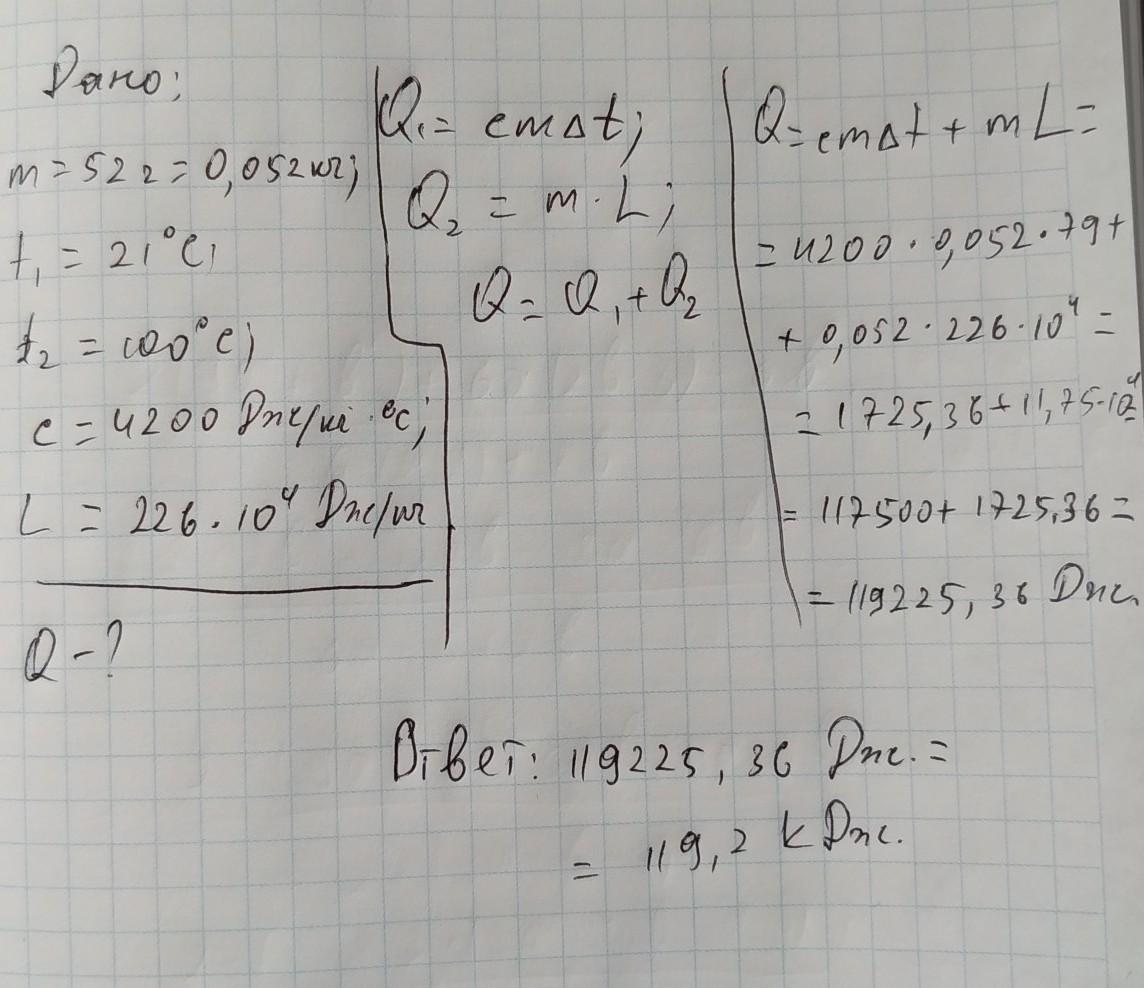 Дано:
m = 52 г = 0,052 кг;
t₁ = 21°C;
t₂ = 100°C;
c = 4200 Дж/кг · °C;
L = 226 · 10⁴ Дж/кг
Q - ?
Q₁ = cmΔt;
Q₂ = m · L;
Q = Q₁ + Q₂
Q = cmΔt + mL =
= 4200 · 0,052 · 79 +
+ 0,052 · 226 · 10⁴ =
= 1725,36 + 11,75 · 10⁴ =
= 117500 + 1725,36 =
= 119225,36 Дж.
Ответ: 119225,36 Дж. =
= 119,2 кДж.